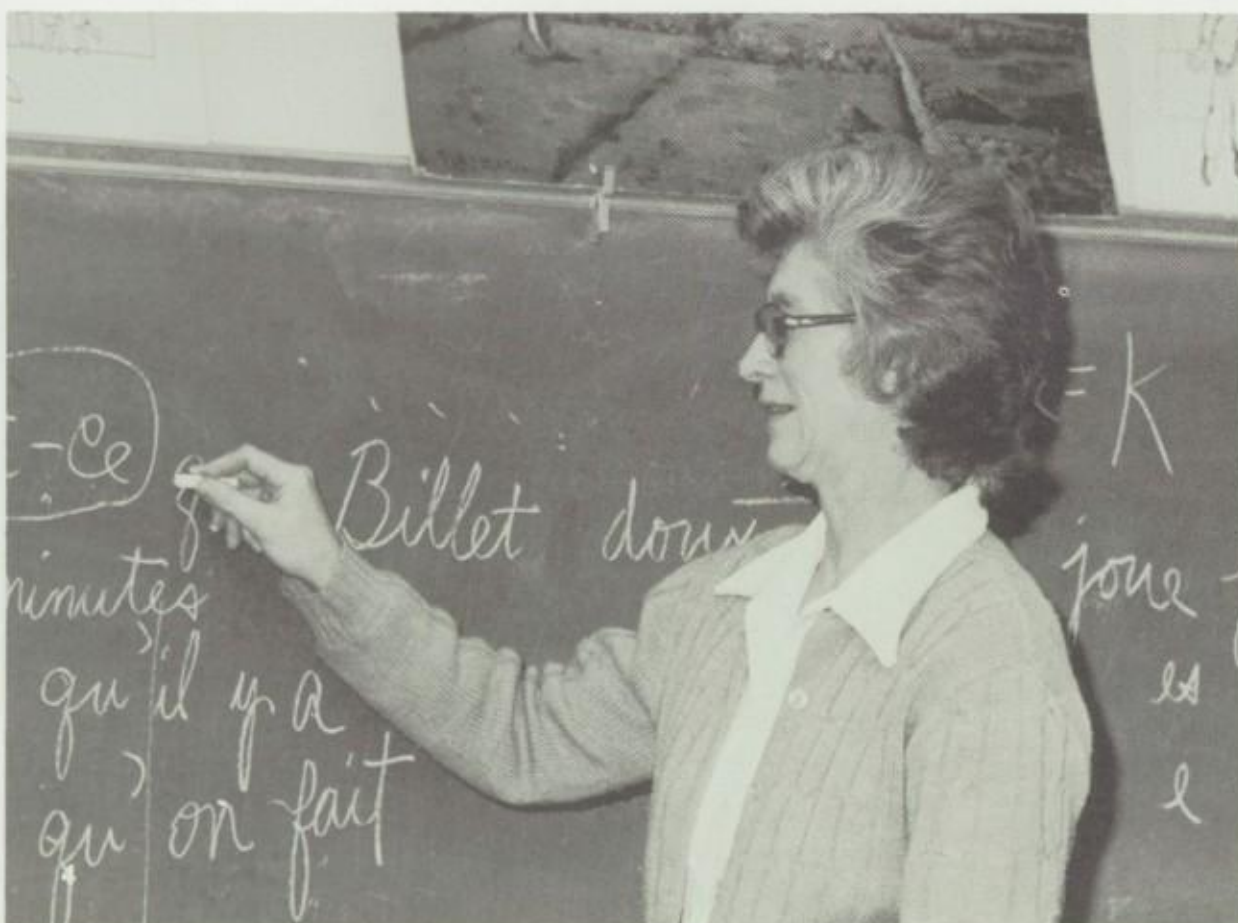 -Ce
Billet doux
= K
minutes
joue
qu'il y a
es
qu'on fait
e
qu'
4